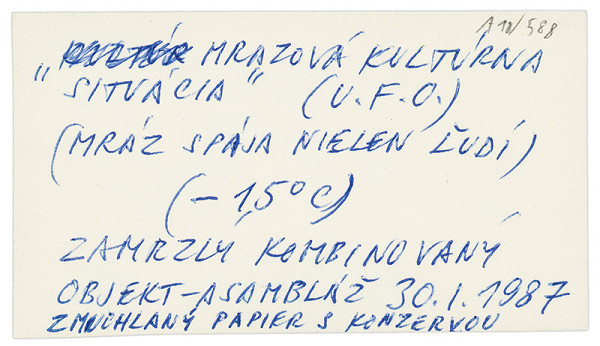 A 10/588
„MRAZOVÁ KULTÚRNA
SITUÁCIA" (U.F.O.)
(MRÁZ SPÁJA NIELEN ĽUDÍ)
(-15°C)
ZAMRZLÝ KOMBINOVANÝ
OBJEKT-ASAMBLÁŽ 30.1.1987
ZMUCHLANÝ PAPIER S KONZERVOU